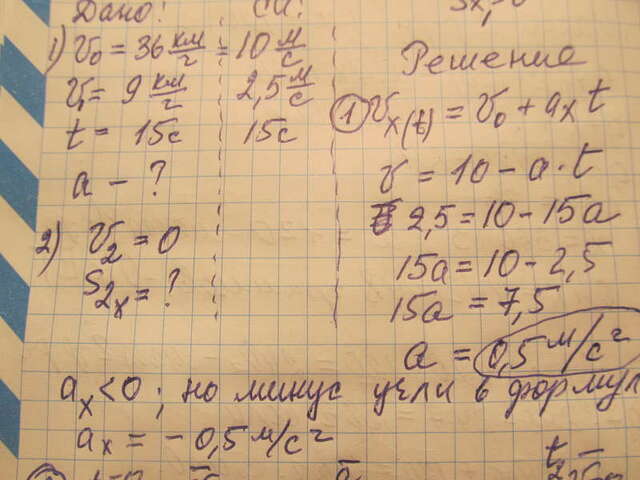 Дано: СИ:
1) V₀ = 36 км/ч = 10 м/с
V₁ = 9 км/ч 2,5 м/с
t = 15с 15с
a - ?
2) V₂ = 0
S₂ₓ = ?
Решение
① Vₓ(t) = V₀ + aₓ t
V = 10 - a · t
2,5 = 10 - 15a
15a = 10 - 2,5
15a = 7,5
a = 0,5 м/с²
aₓ < 0 ; но минус учли в формул
aₓ = - 0,5 м/с²